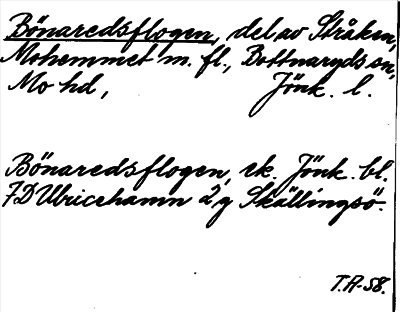 Bönaredsflogen, del av Stråken,
Mohemmet m. fl., Bottnaryds sn,
Mo hd, Jönk. l.
Bönaredsflogen, ek. Jönk. bl.
7D Ulricehamn 2g Skällingsö.
T.A-58.